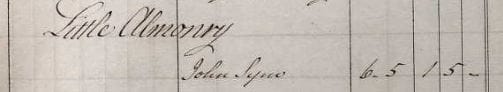 Little Almonry
John Syms 6 - 5 1 5 -